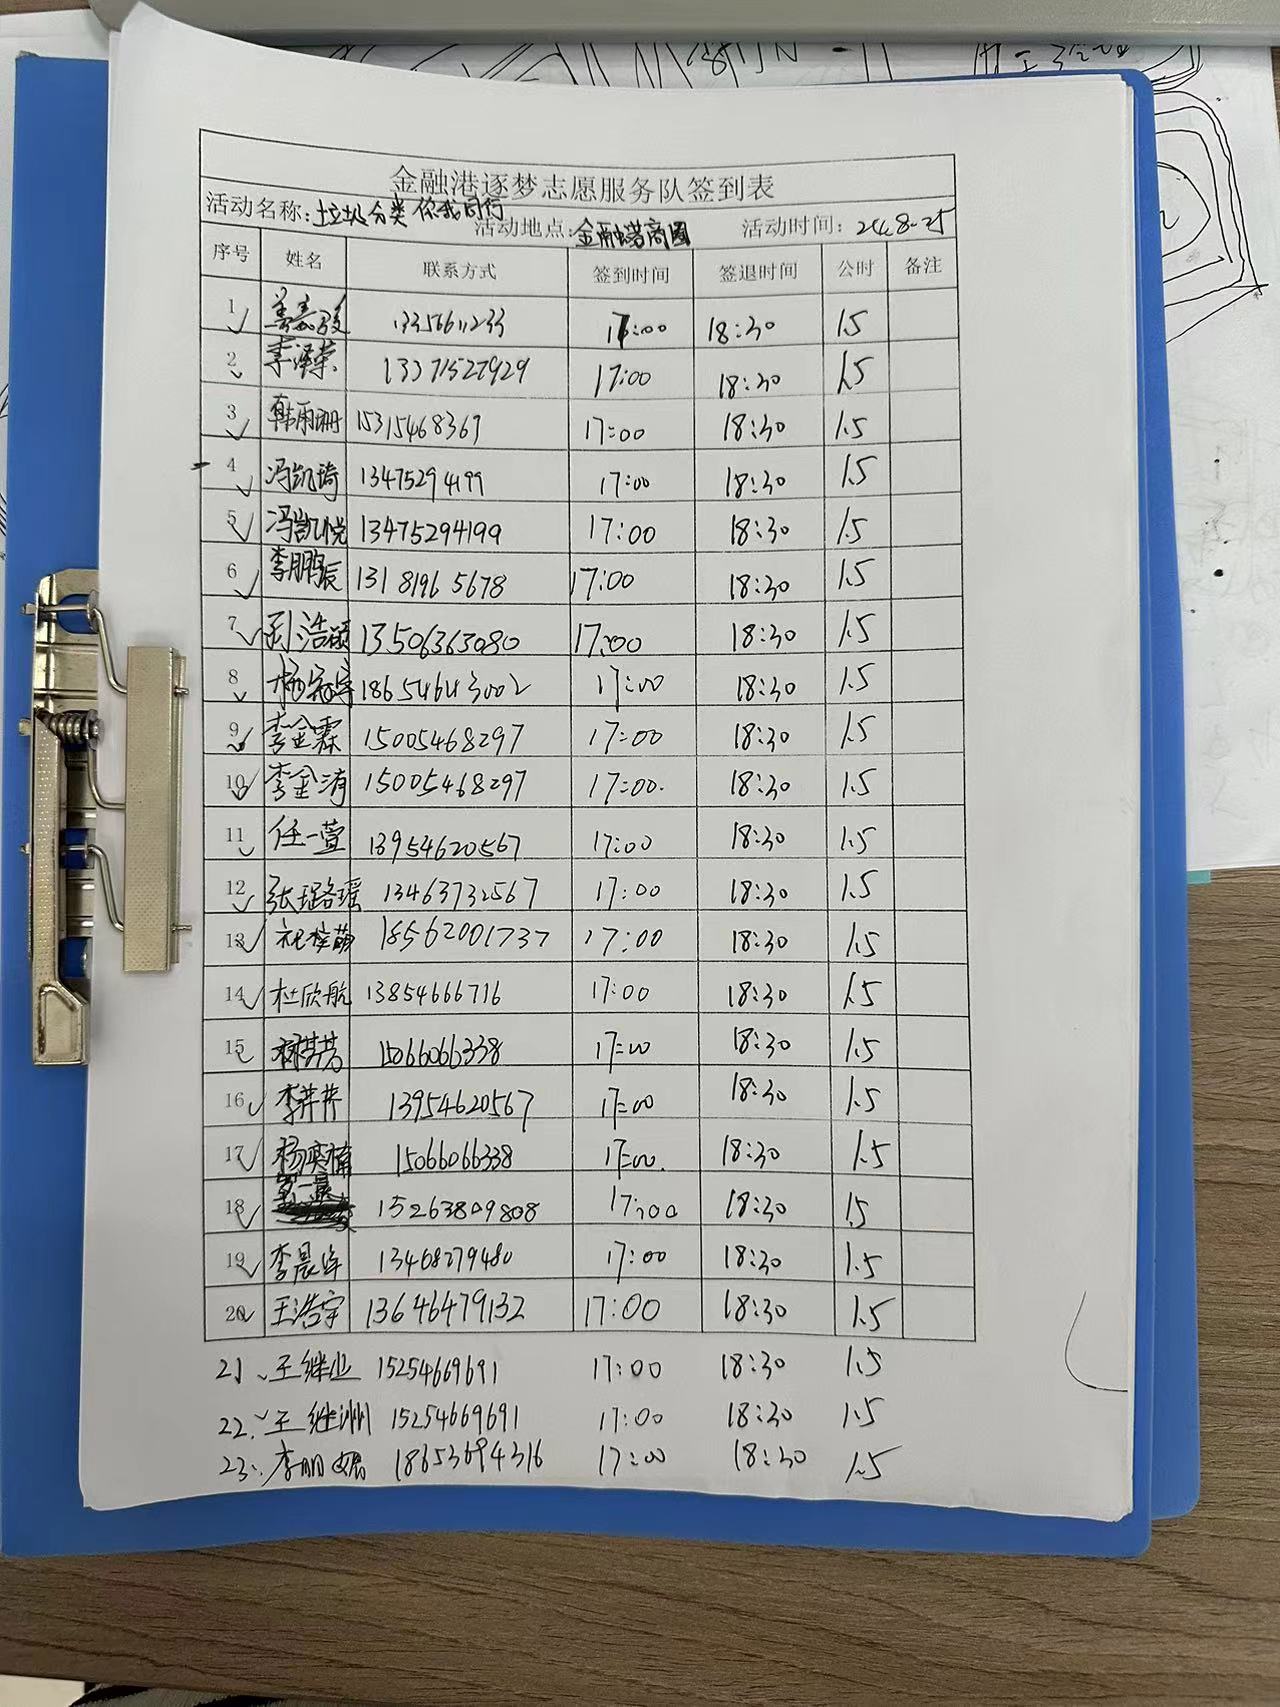 金融港逐梦志愿服务队签到表
活动名称：垃圾分类 你我同行 活动地点：金融港商圈 活动时间：24.8.25
序号 姓名 联系方式 签到时间 签退时间 公时 备注
1 13356611233 17:00 18:30 1.5
2 李泽荣 13271527929 17:00 18:30 1.5
3 韩雨珊 15315468369 17:00 18:30 1.5
4 冯凯琦 13475294199 17:00 18:30 1.5
5 冯凯悦 13475294199 17:00 18:30 1.5
6 李鹏辰 13181965678 17:00 18:30 1.5
7 刘浩硕 13506363080 17:00 18:30 1.5
8 杨宗宇 18654643002 17:00 18:30 1.5
9 李金霖 15005468297 17:00 18:30 1.5
10 李金洧 15005468297 17:00 18:30 1.5
11 任一萱 13954620567 17:00 18:30 1.5
12 张珺瑶 13463732567 17:00 18:30 1.5
13 祝梓萌 18562001737 17:00 18:30 1.5
14 杜欣航 13854666716 17:00 18:30 1.5
15 15066066338 17:00 18:30 1.5
16 李芹芹 13954620567 17:00 18:30 1.5
17 杨奕楠 15066066338 17:00 18:30 1.5
18 15263809808 17:00 18:30 1.5
19 李晨 13468279480 17:00 18:30 1.5
20 王浩宇 13646479132 17:00 18:30 1.5
21、王继业 15254669691 17:00 18:30 1.5
22、王继洲 15254669691 17:00 18:30 1.5
23、李朋 18653694316 17:00 18:30 1.5